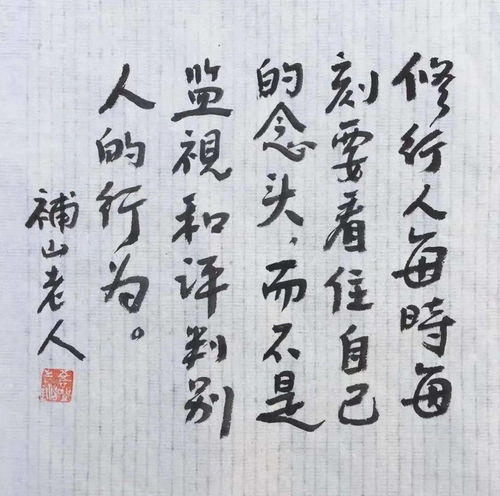 修行人每時每
刻要看住自己
的念头，而不是
监視和评判别
人的行为。
補山老人